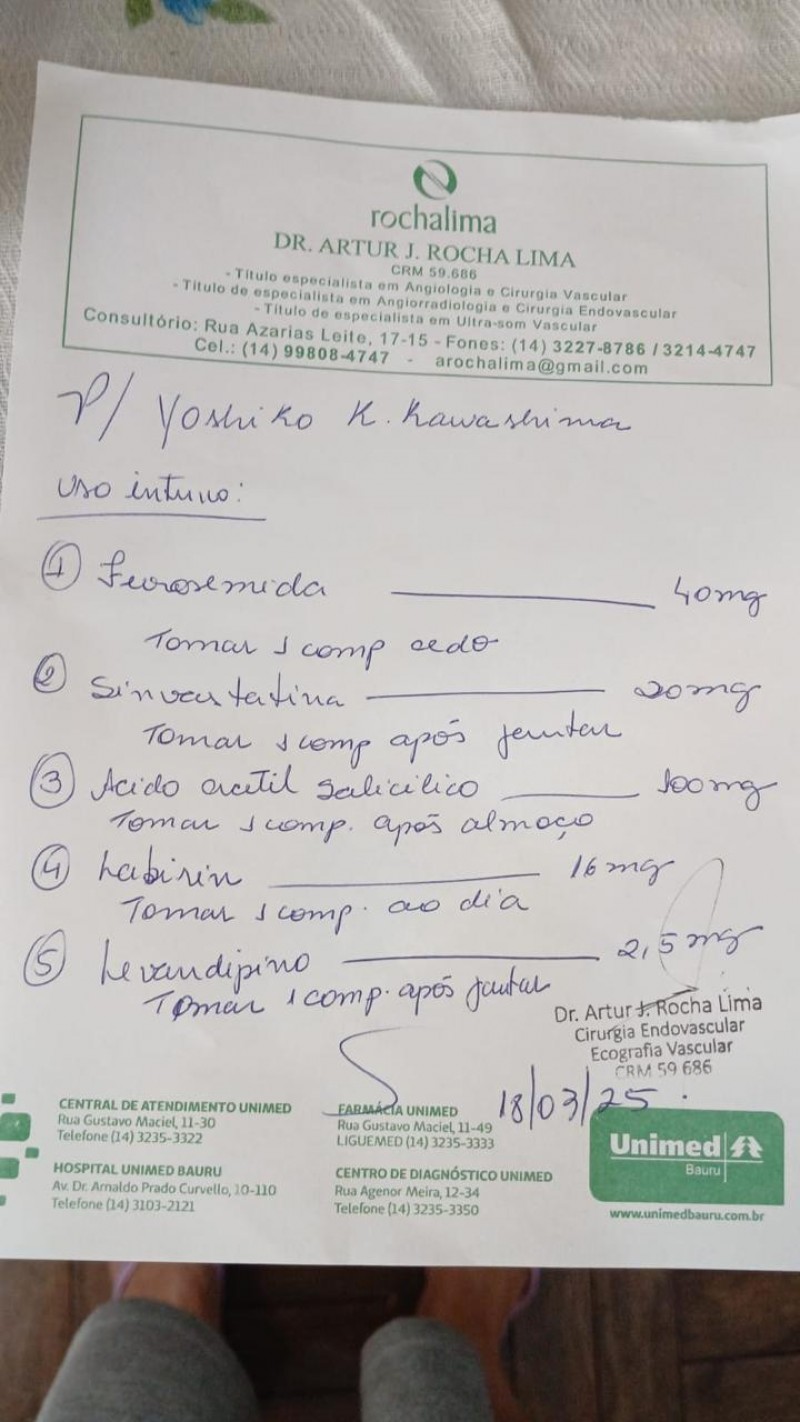 rochalima
DR. ARTUR J. ROCHA LIMA
CRM 59.686
- Título especialista em Angiologia e Cirurgia Vascular
- Título de especialista em Angiorradiologia e Cirurgia Endovascular
- Título de especialista em Ultra-som Vascular
Consultório: Rua Azarias Leite, 17-15 - Fones: (14) 3227-8786 / 3214-4747
Cel.: (14) 99808-4747 - arochalima@gmail.com
P/ Yoshiko K. Kawashima
uso interno:
1 Furosemida 40mg
Tomar 1 comp cedo
2 Sinvastatina 20mg
Tomar 1 comp após jantar
3 Acido acetil salicilico 100mg
Tomar 1 comp. após almoço
4 Labirin 16mg
Tomar 1 comp. ao dia
5 Levandipino 2,5mg
Tomar 1 comp. após jantar
Dr. Artur J. Rocha Lima
Cirurgia Endovascular
Ecografia Vascular
CRM 59 686
18/03/25.
CENTRAL DE ATENDIMENTO UNIMED
Rua Gustavo Maciel, 11-30
Telefone (14) 3235-3322
FARMÁCIA UNIMED
Rua Gustavo Maciel, 11-49
LIGUEMED (14) 3235-3333
HOSPITAL UNIMED BAURU
Av. Dr. Arnaldo Prado Curvello, 10-110
Telefone (14) 3103-2121
CENTRO DE DIAGNÓSTICO UNIMED
Rua Agenor Meira, 12-34
Telefone (14) 3235-3350
Unimed
Bauru
www.unimedbauru.com.br